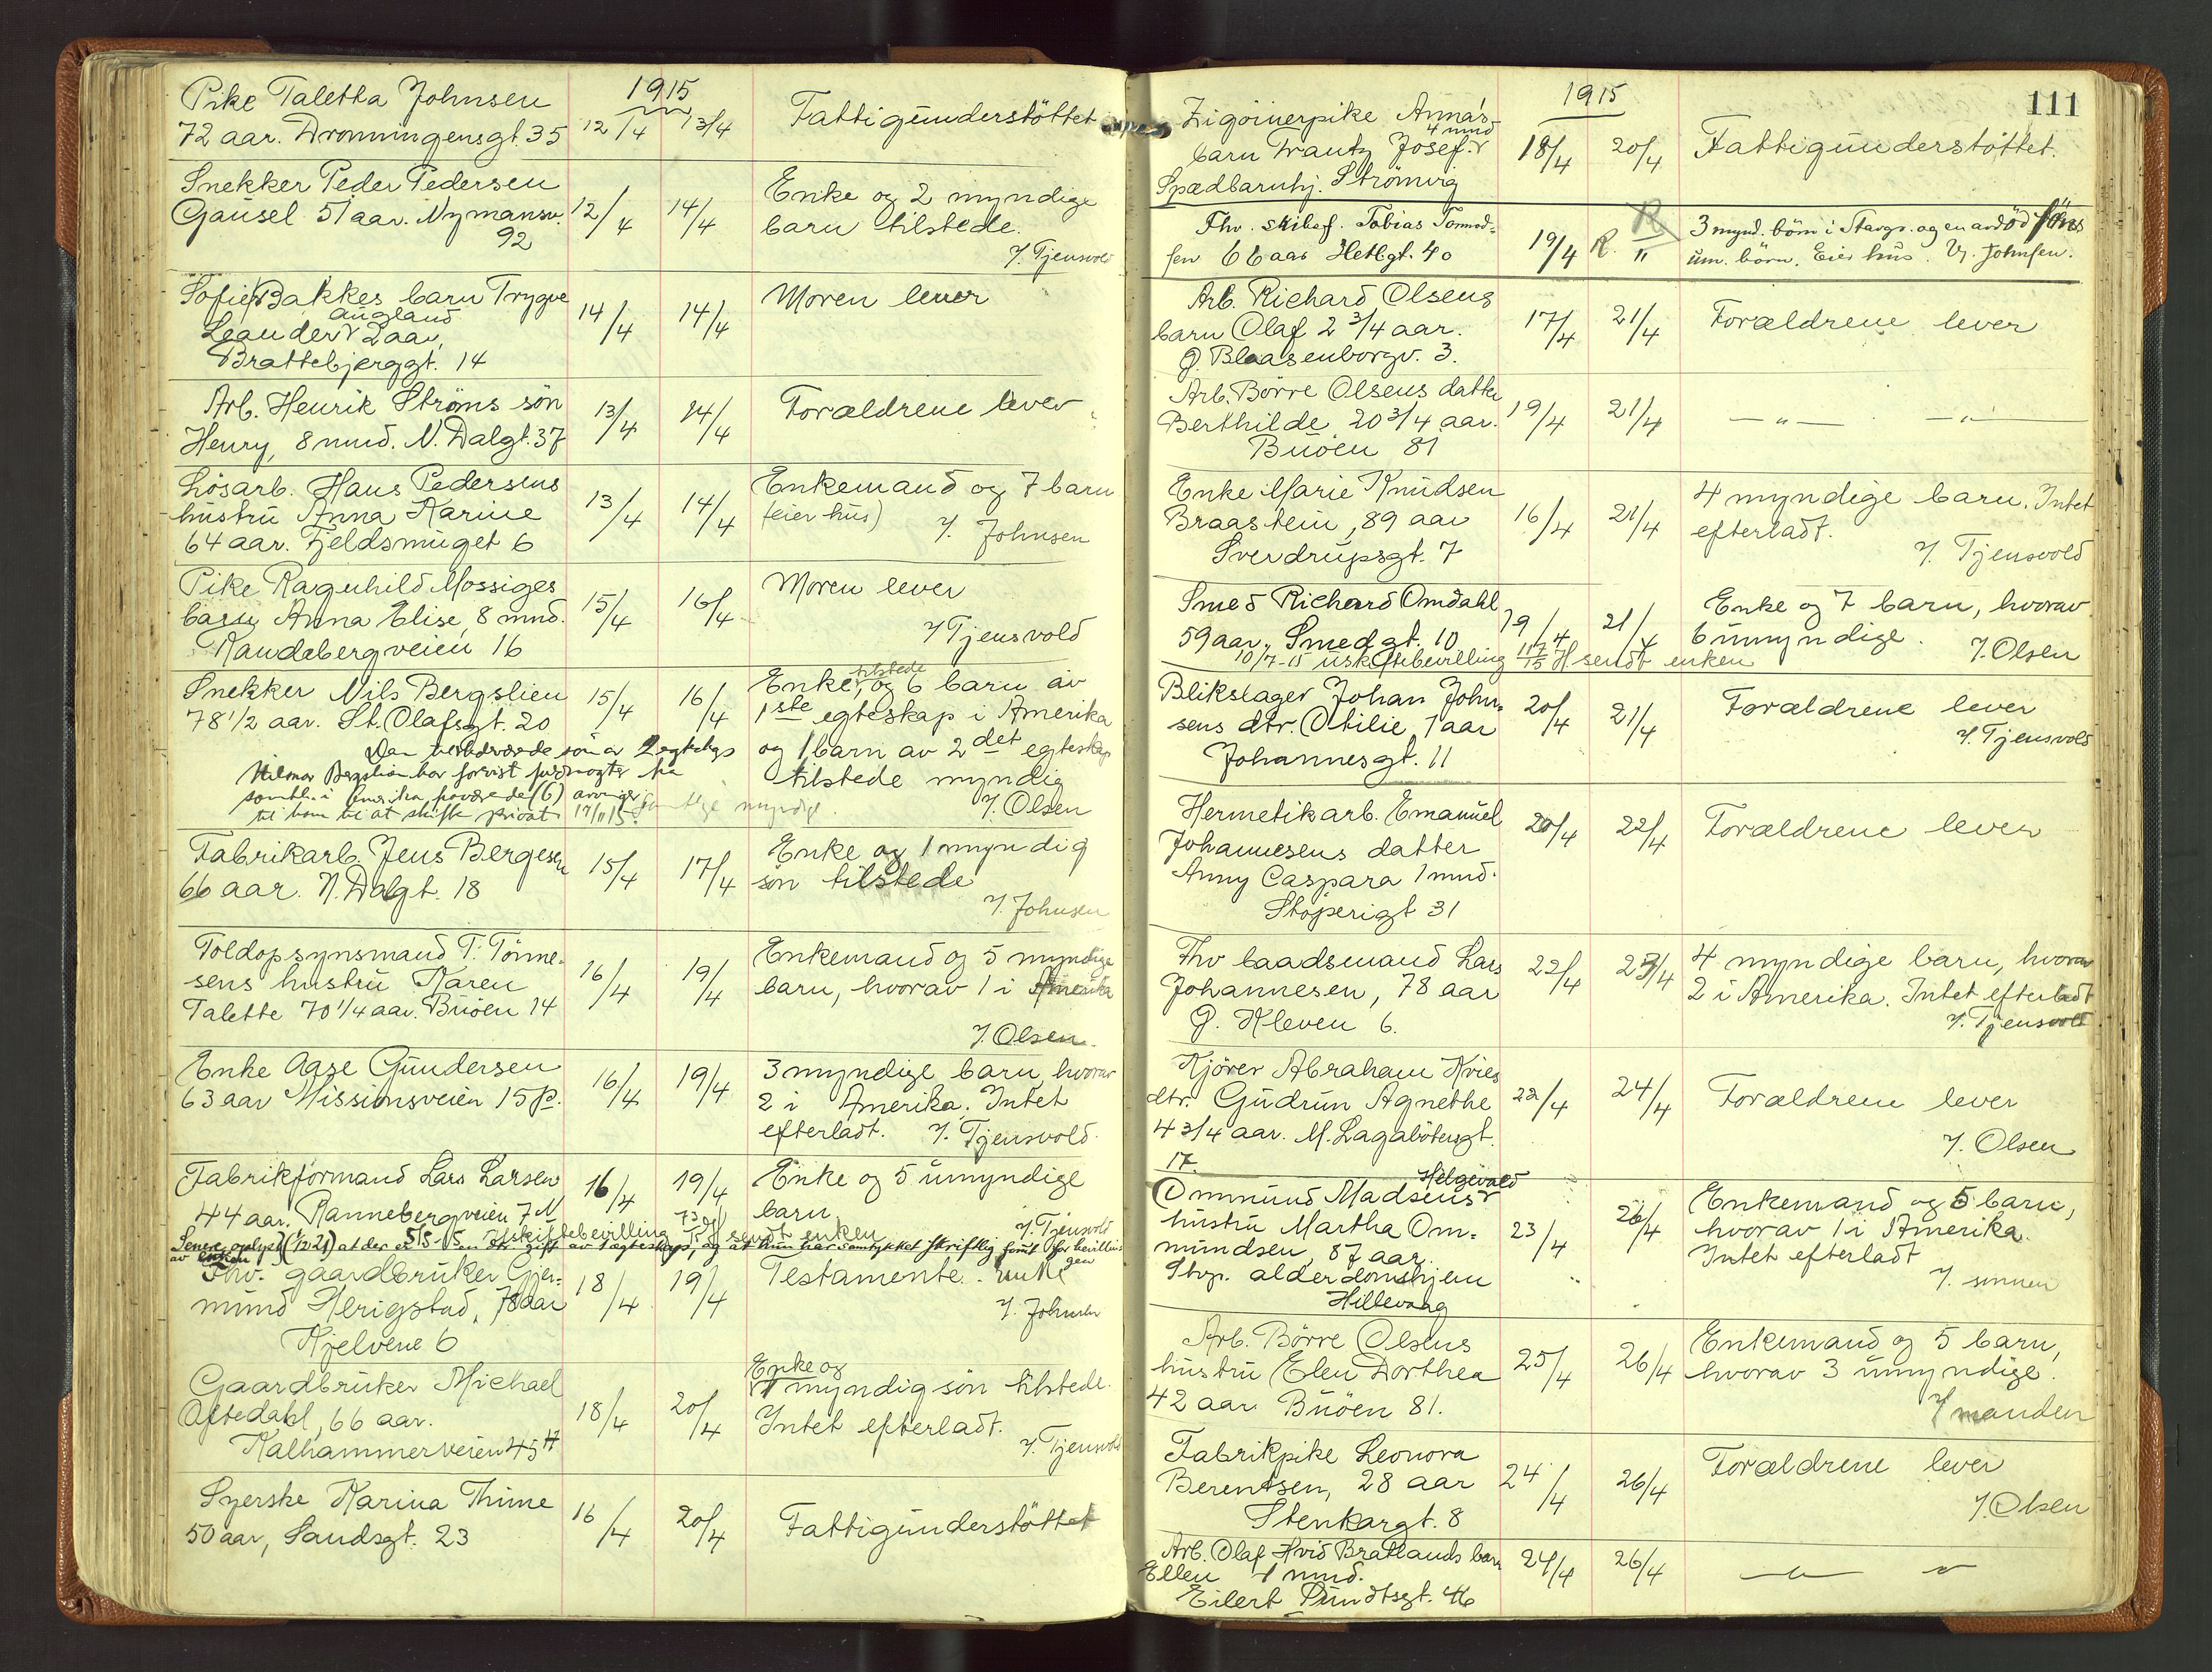 1915
Pike Taletha Johnsen
72 aar. Dronningensgt. 35 12/4 13/4 Fattigunderstöttet
Snekker Peder Pedersen
Gausel 51 aar. Nymansv. 92 12/4 14/4 Enke og 2 myndige
barn tilstede.
V. Tjensvold
Sofie Bakkes barn Trygve
Augland
Leander 2 aar,
Brattebjerggt. 14 14/4 14/4 Moren lever
Arb. Henrik Ströms sön
Henry, 8 mnd. N. Dalgt. 37 13/4 14/4 Forældrene lever
Lösarb. Hans Pedersens
hustru Anna Karine
64 aar. Fjeldsmuget 6 13/4 14/4 Enkemand og 7 barn
(eier hus) V. Johnsen
Pike Ragnhild Mossiges
barn Anna Elise, 8 mnd.
Randabergveien 16 15/4 16/4 Moren lever
V. Tjensvold
Snekker Nils Bergslien
78 1/2 aar. St. Olafsgt. 20 15/4 16/4 Enke, tilstede og 6 barn av
1ste egteskap i Amerika
og 1 barn av 2det egteskap
tilstede myndig
V. Olsen
Den sön av 2 egteskap
Hilmar Bergslien har forvist fuldmagter fra
samtl. i Amerika (6) arvinger
til ham til at skifte privat 17/11 15. Samtlige myndige.
Fabrikarb. Jens Bergesen
66 aar. N. Dalgt. 18 15/4 17/4 Enke og 1 myndig
sön tilstede
V. Johnsen
Toldopsynsmand T. Tönne-
sens hustru Karen
Talette 70 1/4 aar. Buöen 14 16/4 19/4 Enkemand og 5 myndige
barn, hvorav 1 i Amerika
V. Olsen.
Enke Aase Gundersen
63 aar Missionsveien 15 P. 16/4 19/4 3 myndige barn, hvorav
2 i Amerika. Intet
efterladt. V. Tjensvold.
Fabrikformand Lars Larsen
44 aar. Rannebergveien 7 N 16/4 19/4 Enke og 5 umyndige
barn.
V. Tjensvold
5/5-15 uskiftebevilling sendt enken
Senere oplyst (1/12 21) at der er en dtr. gift av 1 egteskap, og at hun har samtykket skriftlig forut for bevillingen
av enken
Fhv. gaardbruker Gjer-
mund Herigstad, 78 aar
Kjelvene 6 18/4 19/4 Testamente. Enke
V. Johnsen
Gaardbruker Michael
Aftedahl, 66 aar.
Kalhammerveien 45 H 18/4 20/4 Enke og
1 myndig sön tilstede.
Intet efterladt.
V. Tjensvold
Syerske Karina Thime
50 aar, Sandsgt. 23 16/4 20/4 Fattigunderstöttet
1915 111
Zigöinerpike Annas
4 mnd
barn Frantz Josef
Spædbarnhj. Strömvig 18/4 20/4 Fattigunderstöttet.
Fhv. skibsf. Tobias Tonnes-
sen 66 aar Hetlgt. 40 19/4 R. R/11 3 mynd. börn i Stavgr. og en avdöd söns
um. börn. Eier hus. V. Johnsen.
Arb. Richard Olsens
barn Olaf 2 3/4 aar.
G. Blaasenborgv. 3. 17/4 21/4 Forældrene lever
Arb. Börre Olsens datter
Berthilde, 20 3/4 aar.
Buöen 81 19/4 21/4 — " — — " —
Enke Marie Knudsen
Braastein, 89 aar
Sverdrupsgt. 7 16/4 21/4 4 myndige barn. Intet
efterladt.
V. Tjensvold
Smed Richard Omdahl
59 aar, Smedgt. 10 19/4 21/4 Enke og 7 barn, hvorav
6 umyndige.
V. Olsen
10/7-15 uskiftebevilling 11/7 15 sendt enken
Blikslager Johan John-
sens dtr. Otilie, 1 aar
Johannesgt. 11 20/4 21/4 Forældrene lever
V. Tjensvold
Hermetikarb. Emanuel
Johannesens datter
Anny Caspara 1 mnd.
Stöperigt 31 20/4 22/4 Forældrene lever
Fhv baadsmand Lars
Johannesen, 78 aar
G. Kleven 6. 22/4 23/4 4 myndige barn, hvorav
2 i Amerika. Intet efterladt
V. Tjensvold
Kjörer Abraham Kvies
dtr. Gudrun Agnethe
4 3/4 aar. M. Lagabötersgt.
17. 22/4 24/4 Forældrene lever
V. Olsen
Helgevold
Ommund Madsens
hustru Martha Om-
mundsen, 87 aar
Stvg. alderdomshjem
Hillevaag 23/4 26/4 Enkemand og 5 barn,
hvorav 1 i Amerika.
Intet efterladt
V. sönnen
Arb. Börre Olsens
hustru Elen Dorthea
42 aar. Buöen 81. 25/4 26/4 Enkemand og 5 barn,
hvorav 3 umyndige.
V manden
Fabrikpike Leonora
Berentsen, 28 aar
Stenkargt. 8 24/4 26/4 Forældrene lever
V. Olsen
Arb. Olaf Hvid Bratlands barn
Ellen 1 mnd.
Eilert Sundtsgt. 46 24/4 26/4 — " — "